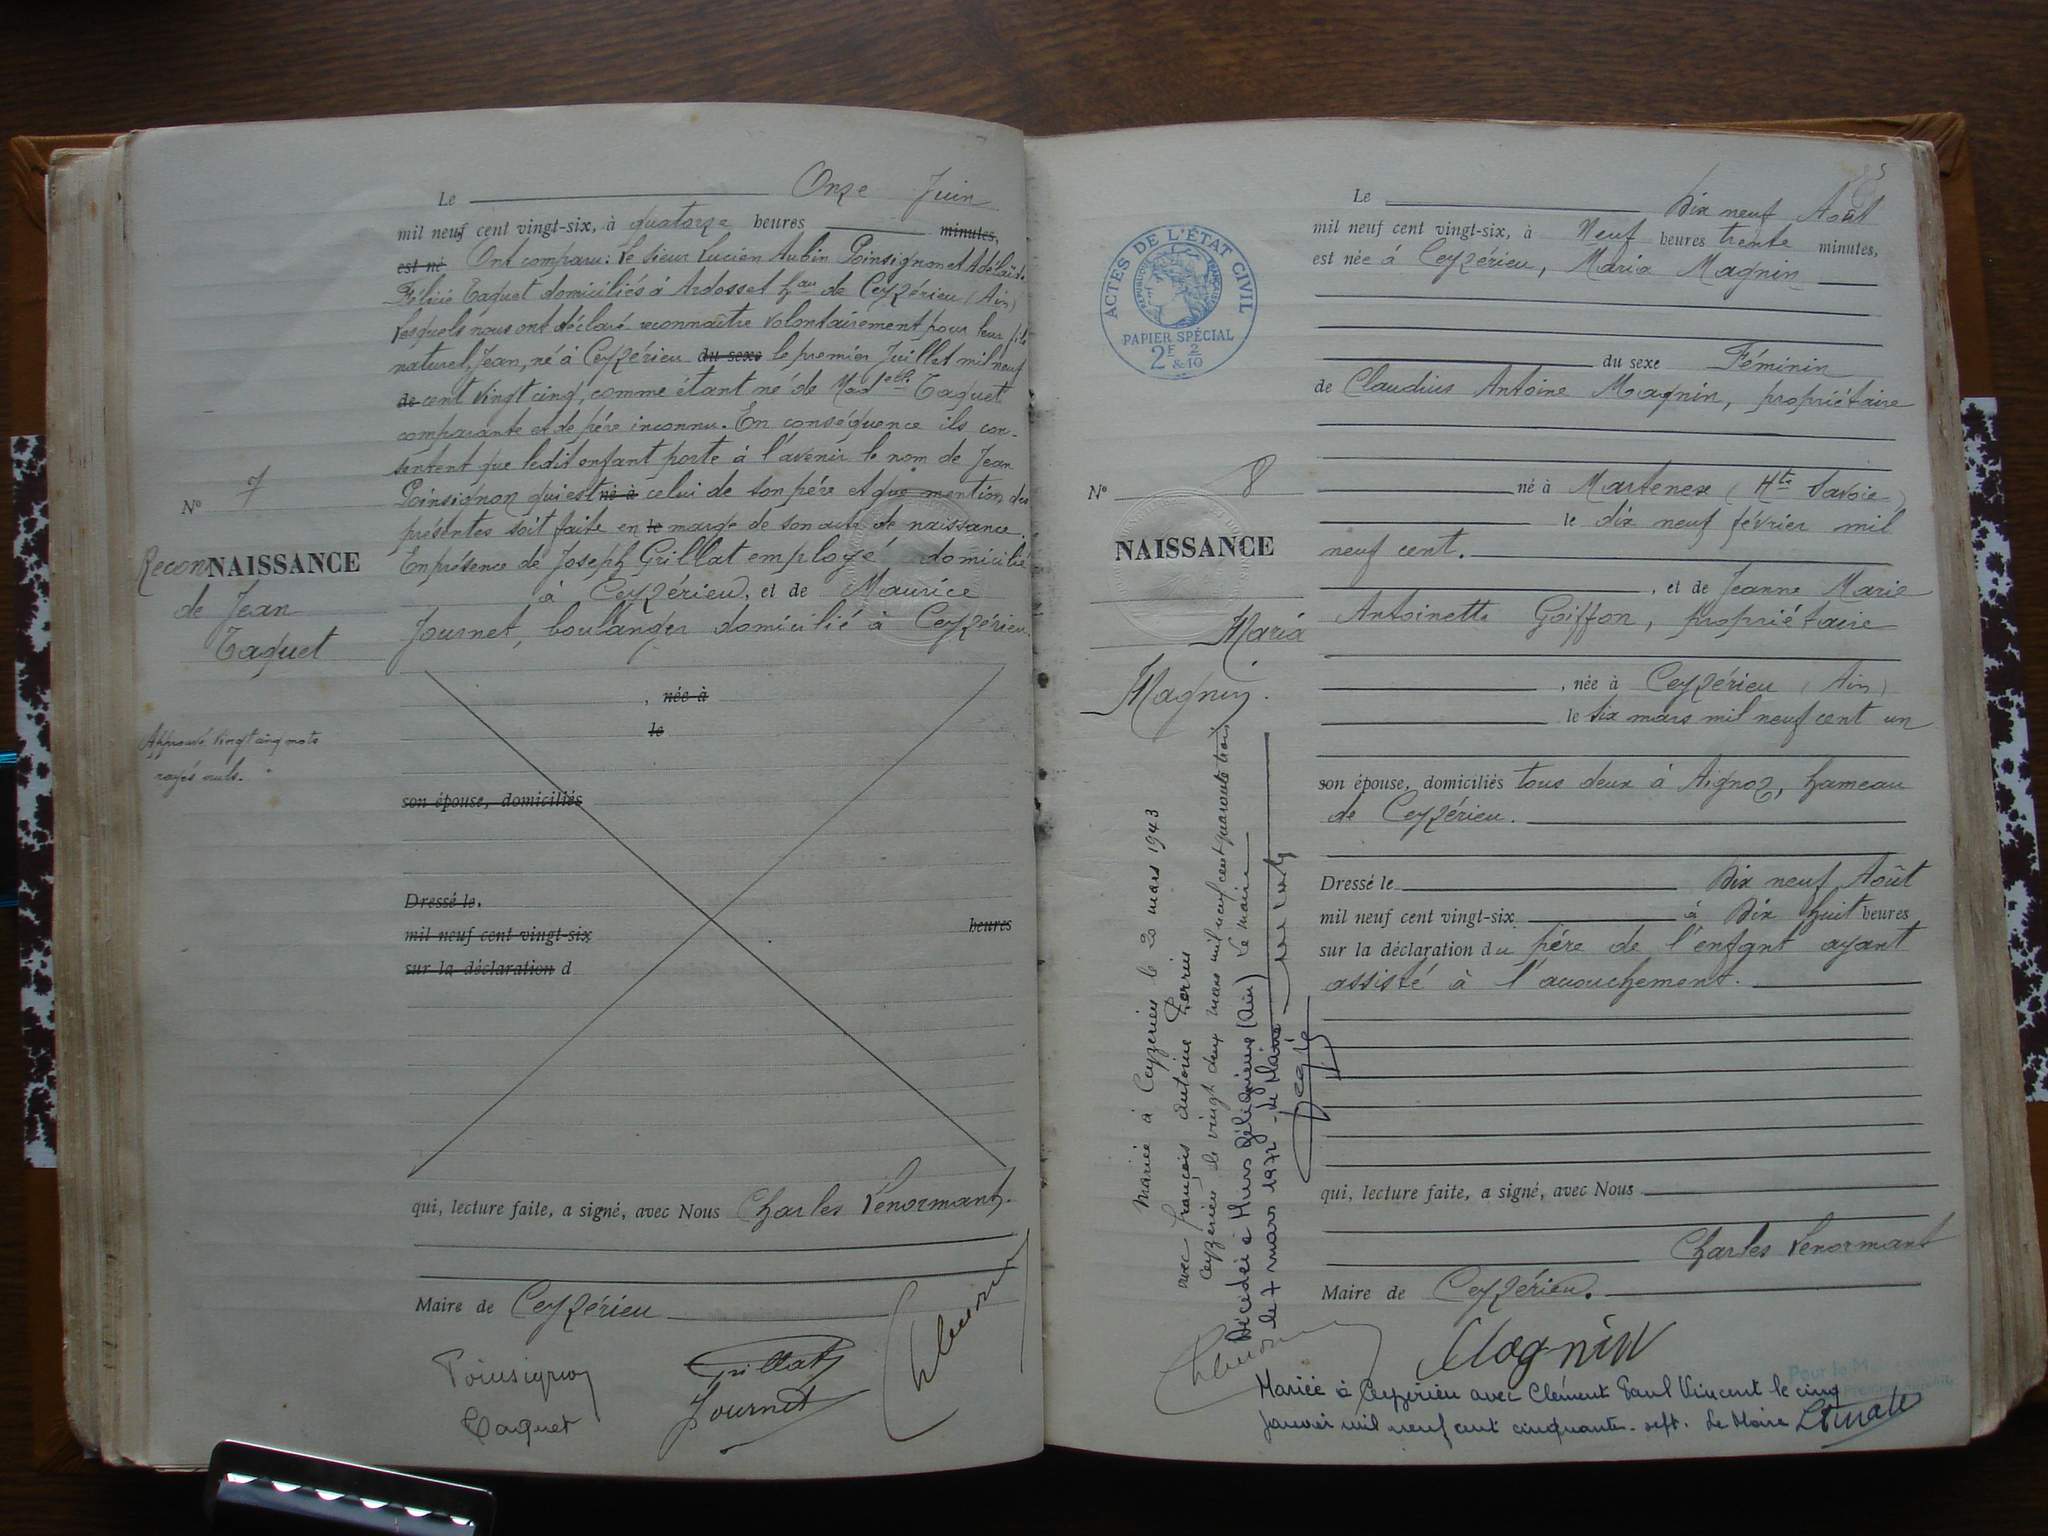 Le Onze Juin
mil neuf cent vingt-six, à quatorze heures minutes,
est né Ont comparu: le sieur Lucien Aubin Poinsignon et Adélaïde
Félicie Taquet domiciliés à Ardosset hau de Ceyzérieu (Ain)
lesquels nous ont déclaré reconnaître volontairement pour leur fils
naturel, Jean, né à Ceyzérieu du sexe le premier Juillet mil neuf
de cent vingt cinq, comme étant né de Madelle Taquet
comparante et de père inconnu. En conséquence ils con-
sentent que ledit enfant porte à l'avenir le nom de Jean
Poinsignon qui est né à celui de son père et que mention des
présentes soit faite en le marge de son acte de naissance.
En présence de Joseph Grillat employé domicilié
à Ceyzérieu, et de Maurice
Journet, boulanger domicilié à Ceyzérieu.
N° 7
ReconNAISSANCE
de Jean
Taquet
Approuvé vingt cinq mots
rayés nuls.
, née à
le
son épouse, domiciliés
Dressé le.
mil neuf cent vingt-six heures
sur la déclaration d
qui, lecture faite, a signé, avec Nous Charles Lenormant.
Maire de Ceyzérieu
Poinsignon
Taquet
Grillat
Journet
ACTES DE L'ÉTAT CIVIL
PAPIER SPÉCIAL
2F 2
&10
Le Dix neuf Août
mil neuf cent vingt-six, à Neuf heures trente minutes,
est née à Ceyzérieu, Maria Magnin
du sexe Féminin
de Claudius Antoine Magnin, propriétaire
N° 8
NAISSANCE
Maria
Magnin.
né à Martenex (Hte Savoie)
le dix neuf février mil
neuf cent.
, et de Jeanne Marie
Antoinette Goiffon, propriétaire
, née à Ceyzérieu (Ain)
le six mars mil neuf cent un
son épouse, domiciliés tous deux à Aignoz, hameau
de Ceyzérieu.
Dressé le Dix neuf Août
mil neuf cent vingt-six à Dix huit heures
sur la déclaration du père de l'enfant ayant
assisté à l'accouchement.
qui, lecture faite, a signé, avec Nous
Charles Lenormant
Maire de Ceyzérieu.
Mariée à Ceyzérieu le 20 mars 1943
avec françois antoine Perrier
Ceyzérieu le vingt deux mars mil neuf cent quarante trois
Le Maire
Décédée à Murs Gélignieux (Ain)
le 7 mars 1972 - Le Maire
Magnin
Mariée à Ceyzérieu avec Clément Paul Vincent le cinq
Janvier mil neuf cent cinquante-sept. Le Maire
Pour le M